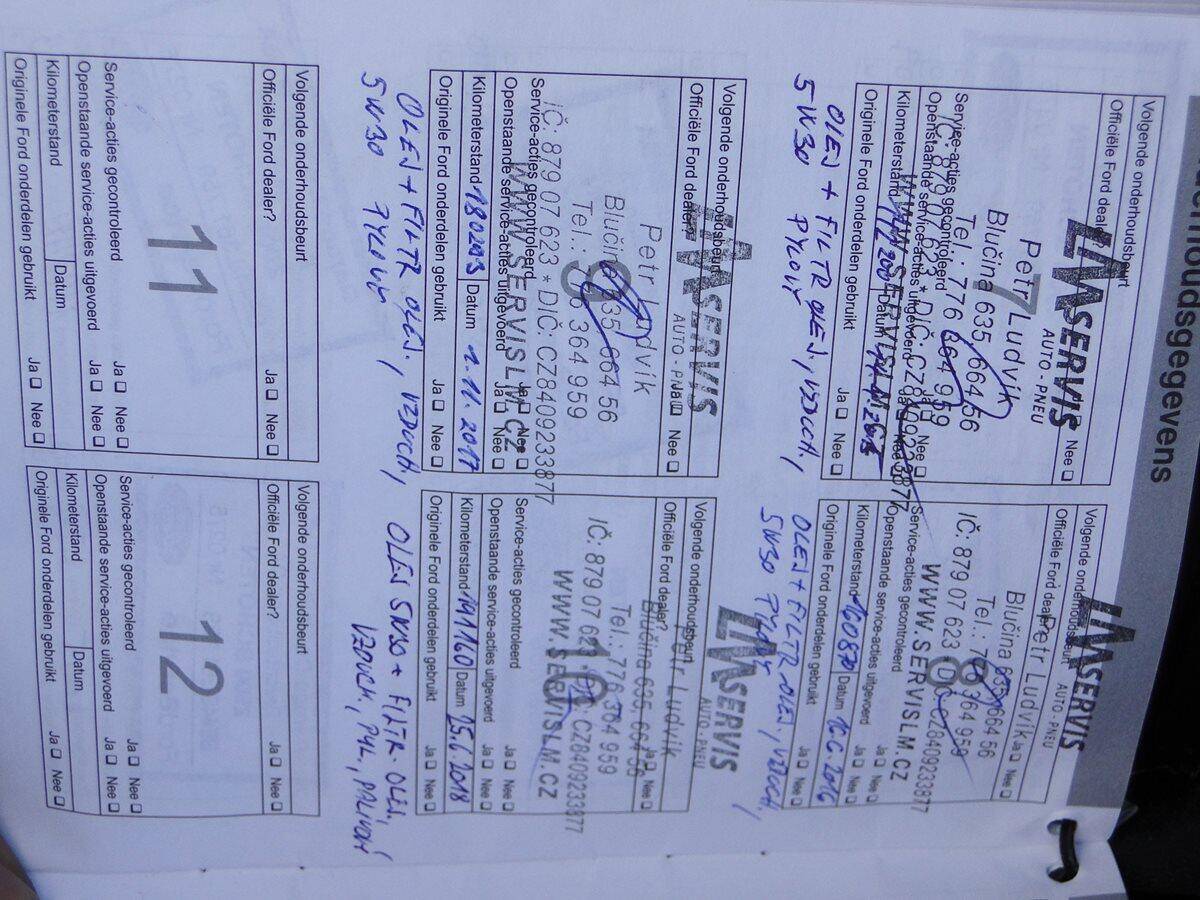 derhoudsgegevens
Volgende onderhoudsbeurt
Officiële Ford dealer?
Nee
LM SERVIS
AUTO - PNEU
Petr Ludvik
7
Blučina 635, 664 56
Tel.: 776 364 959
IČ: 879 07 623 * DIČ: CZ8409233877
WWW.SERVISLM.CZ
Service-acties gecontroleerd
Openstaande service-acties uitgevoerd
Kilometerstand
Datum
Originele Ford onderdelen gebruikt Ja Nee
OLEJ + FILTR OLEJ., VZDUCH,
5W30 PYLOVÝ
Volgende onderhoudsbeurt
Officiële Ford dealer? Ja Nee
LM SERVIS
AUTO - PNEU
Petr Ludvik
8
Blučina 635, 664 56
Tel.: 776 364 959
IČ: 879 07 623 * DIČ: CZ8409233877
WWW.SERVISLM.CZ
Service-acties gecontroleerd Ja Nee
Openstaande service-acties uitgevoerd Ja Nee
Kilometerstand 160870 Datum 16.6.2016
Originele Ford onderdelen gebruikt Ja Nee
OLEJ + FILTR OLEJ., VZDUCH,
5W30 PYLOVÝ
Volgende onderhoudsbeurt
Officiële Ford dealer? Ja Nee
LM SERVIS
AUTO - PNEU
Petr Ludvik
9
Blučina 635, 664 56
Tel.: 776 364 959
IČ: 879 07 623 * DIČ: CZ8409233877
WWW.SERVISLM.CZ
Service-acties gecontroleerd Ja Nee
Openstaande service-acties uitgevoerd Ja Nee
Kilometerstand 180203 Datum 2.11.2017
Originele Ford onderdelen gebruikt Ja Nee
OLEJ + FILTR OLEJ., VZDUCH,
5W30 PYLOVÝ
Volgende onderhoudsbeurt
Officiële Ford dealer? Ja Nee
LM SERVIS
AUTO - PNEU
Petr Ludvik
Blučina 635, 664 56
Tel.: 776 364 959
10
IČ: 879 07 623 * DIČ: CZ8409233877
WWW.SERVISLM.CZ
Service-acties gecontroleerd Ja Nee
Openstaande service-acties uitgevoerd Ja Nee
Kilometerstand 191160 Datum 25.6.2018
Originele Ford onderdelen gebruikt Ja Nee
OLEJ 5W30 + FILTR. OLEJ.
VZDUCH., PYL., PALIVOVÝ
Volgende onderhoudsbeurt
Officiële Ford dealer? Ja Nee
11
Service-acties gecontroleerd Ja Nee
Openstaande service-acties uitgevoerd Ja Nee
Kilometerstand Datum
Originele Ford onderdelen gebruikt Ja Nee
Volgende onderhoudsbeurt
Officiële Ford dealer? Ja Nee
12
Service-acties gecontroleerd Ja Nee
Openstaande service-acties uitgevoerd Ja Nee
Kilometerstand Datum
Originele Ford onderdelen gebruikt Ja Nee